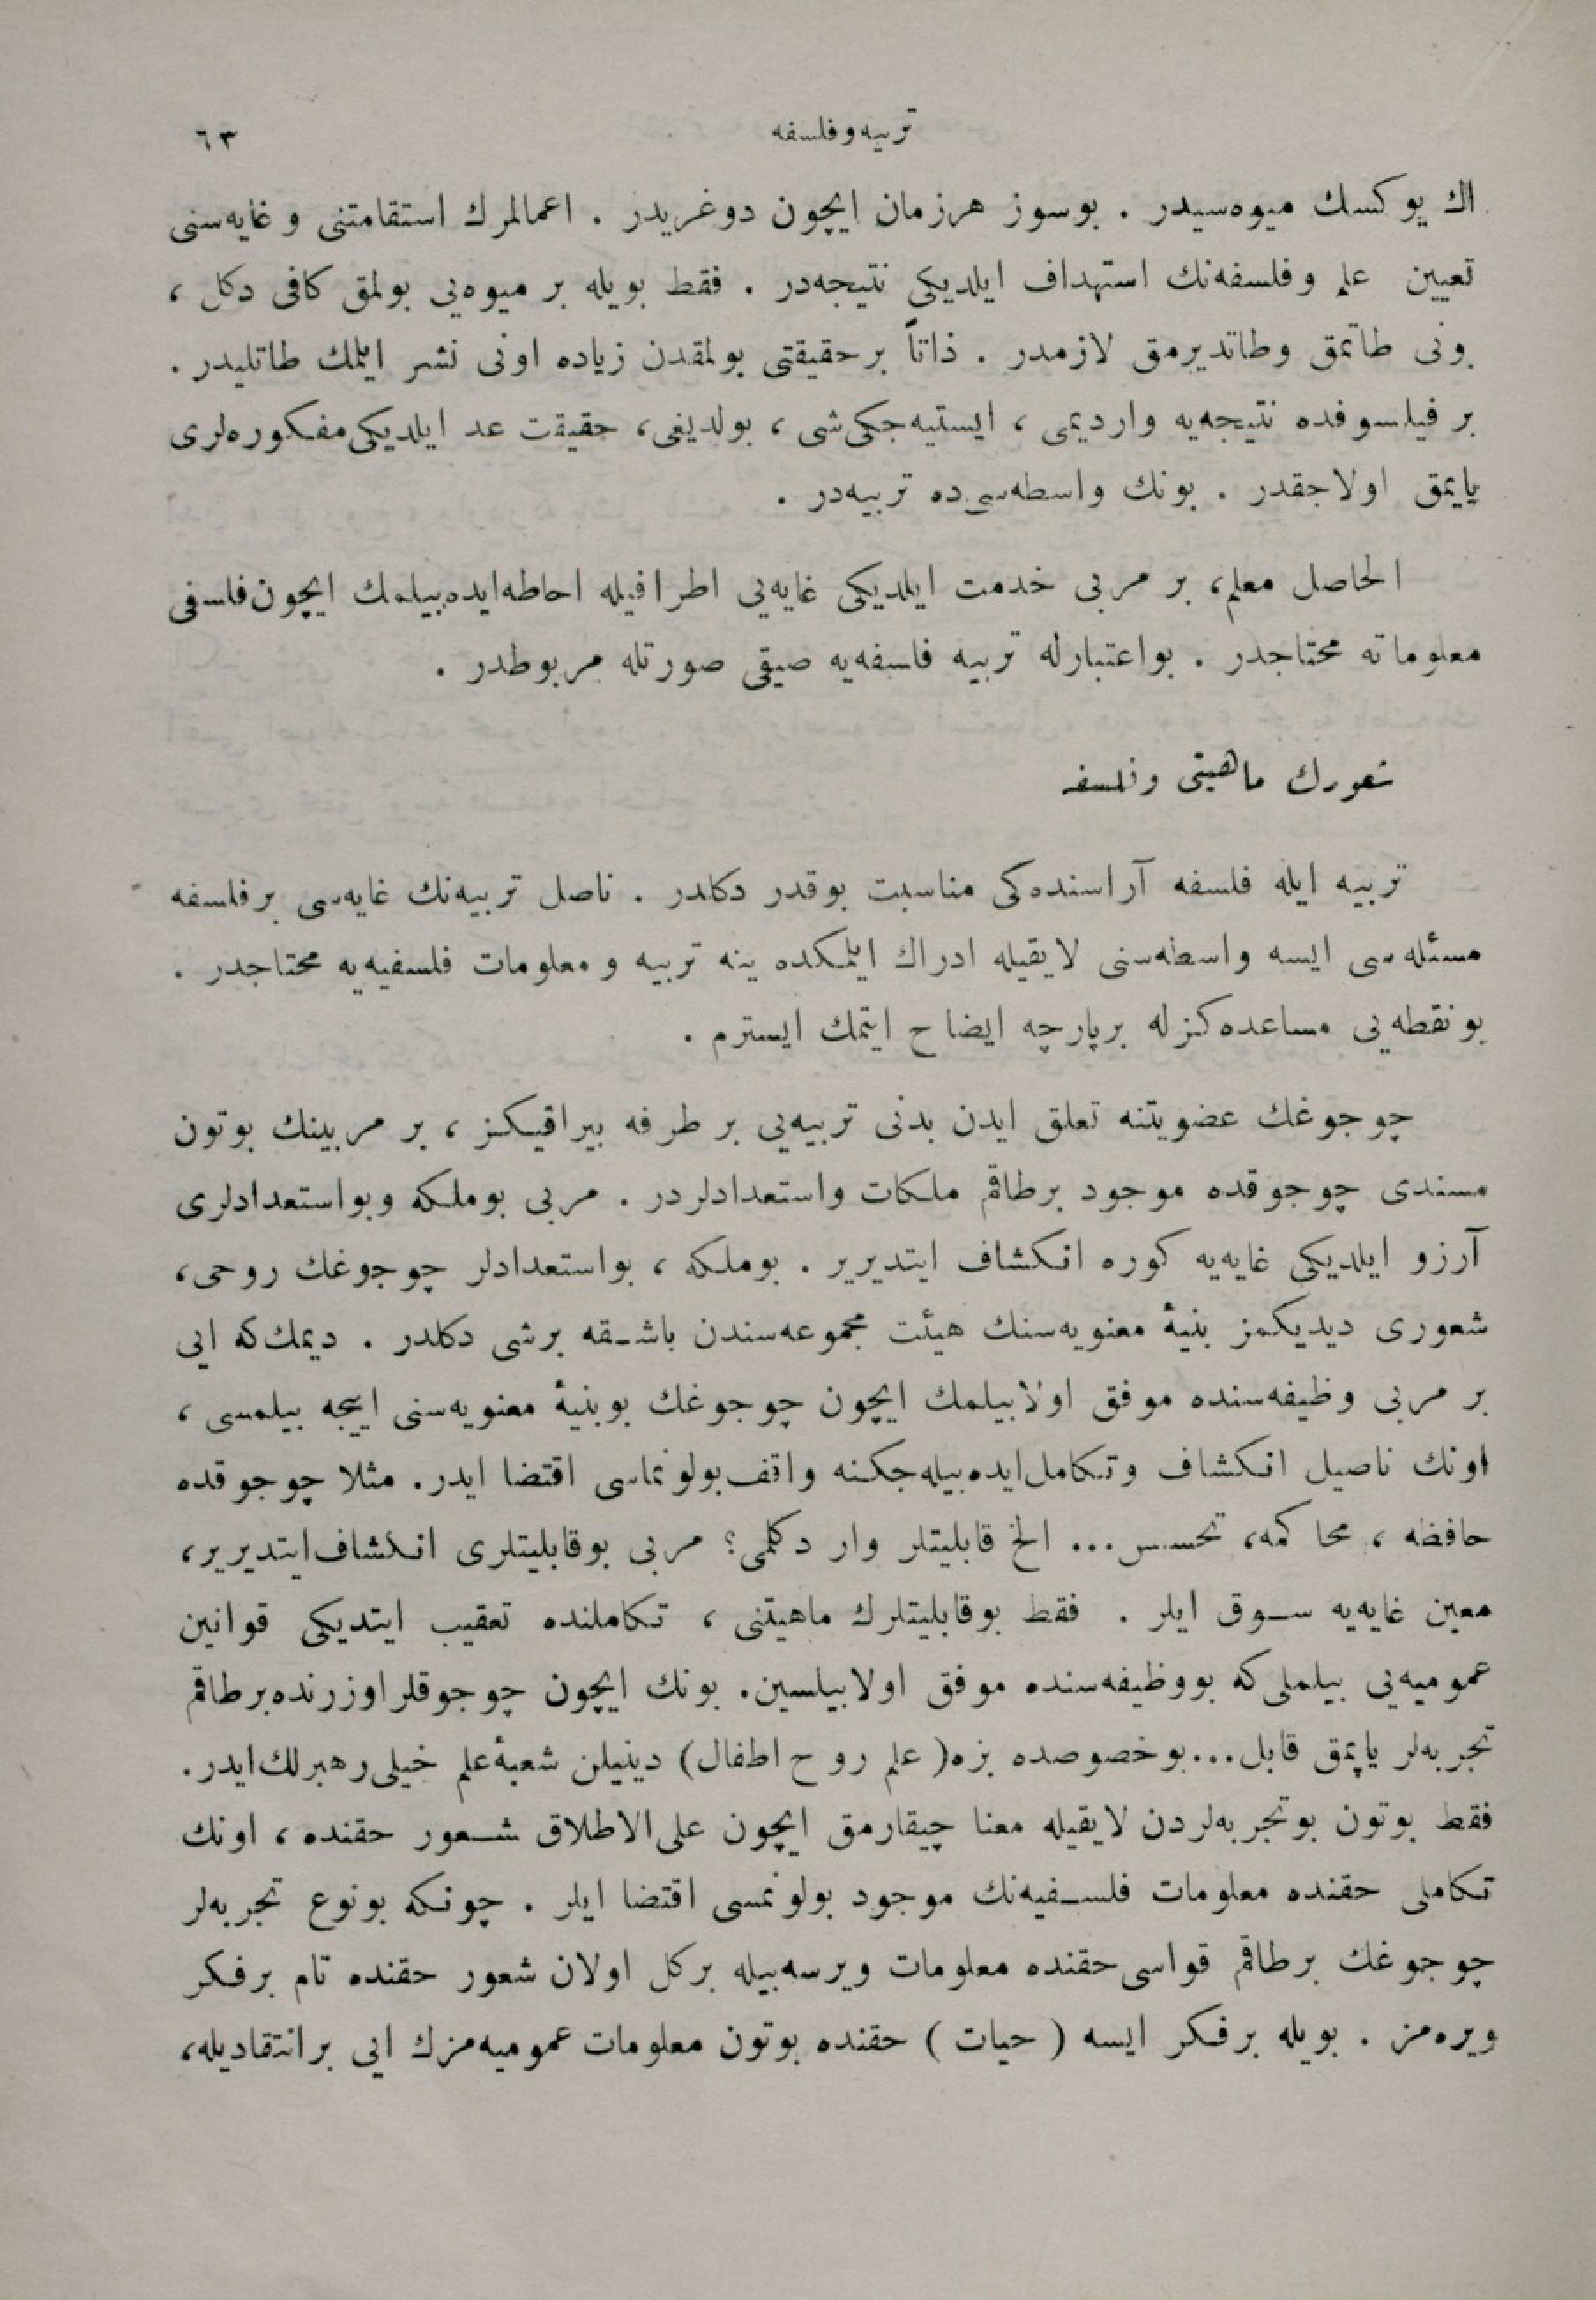 تربیه و فلسفه
٦٣
اك یوكسك میوه‌سیدر . بوسوز هرزمان ایچون دوغریدر . اعمالمرك استقامتنی و غایه‌سنی
تعیین علم و فلسفه‌نك استهداف ایلدیكی نتیجه‌در . فقط بویله بر میوه‌یی بولمق كافی دكل ،
بونی طاتمق وطاتدیرمق لازمدر . ذاتاً برحقیقتی بولمقدن زیاده اونی نشر ایلمك طاتلیدر .
بر فیلسوفده نتیجه‌یه واردیمی ، ایستیه‌جكی شی ، بولدیغی، حقیقت عد ایلدیكی مفكوره‌لری
یایمق اولاجقدر . بونك واسطه‌سی‌ده تربیه‌در .
الحاصل معلم، بر مربی خدمت ایلدیكی غایه‌یی اطرافیله احاطه‌ایده‌بیلمك ایچون فلسفی
معلوماته محتاجدر . بواعتبارله تربیه فلسفه‌یه صیقی صورتله مربوطدر .
شعورك ماهیتی وفلسفه
تربیه ایله فلسفه آراسنده‌كی مناسبت بوقدر دكلدر . ناصل تربیه‌نك غایه‌سی برفلسفه
مسئله‌سی ایسه واسطه‌سنی لایقیله ادراك ایلمكده ینه تربیه و معلومات فلسفیه‌یه محتاجدر .
بونقطه‌یی مساعده‌كزله برپارچه ایضاح ایتمك ایسترم .
چوجوغك عضویتنه تعلق ایدن بدنی تربیه‌یی بر طرفه بیراقیكز ، بر مربینك بوتون
مسندی چوجوقده موجود برطاقم ملكات واستعدادلردر . مربی بوملكه وبواستعدادلری
آرزو ایلدیكی غایه‌یه كوره انكشاف ایتدیریر . بوملكه ، بواستعدادلر چوجوغك روحی،
شعوری دیدیكمز بنیهٔ معنویه‌سنك هیئت مجموعه‌سندن باشقه برشی دكلدر . دیمك‌كه ایی
بر مربی وظیفه‌سنده موفق اولابیلمك ایچون چوجوغك بوبنیهٔ معنویه‌سنی اییجه بیلمسی ،
اونك ناصیل انكشاف وتكامل‌ایده‌بیله‌جكنه واقف‌بولونماسی اقتضا ایدر. مثلا چوجوقده
حافظه ، محاكمه، تحسس... الخ قابلیتلر وار دكلمی؟ مربی بوقابلیتلری انكشاف‌ایتدیریر،
معین غایه‌یه سوق ایلر . فقط بوقابلیتلرك ماهیتنی ، تكاملنده تعقیب ایتدیكی قوانین
عمومیه‌یی بیلملی‌كه بووظیفه‌سنده موفق اولابیلسین. بونك ایچون چوجوقلر اوزرنده‌برطاقم
تجربه‌لر یاپمق قابل...بوخصوصده بزه (علم روح اطفال) دینیلن شعبهٔ‌علم خیلی رهبرلك‌ایدر.
فقط بوتون بوتجربه‌لردن لایقیله معنا چیقارمق ایچون علی‌الاطلاق شعور حقنده ، اونك
تكاملی حقنده معلومات فلسفیه‌نك موجود بولونمسی اقتضا ایلر . چونكه بونوع تجربه‌لر
چوجوغك برطاقم قواسی حقنده معلومات ویرسه‌بیله بركل اولان شعور حقنده تام برفكر
ویره‌مز . بویله برفكر ایسه ( حیات ) حقنده بوتون معلومات عمومیه‌مزك ایی برانتقادیله،